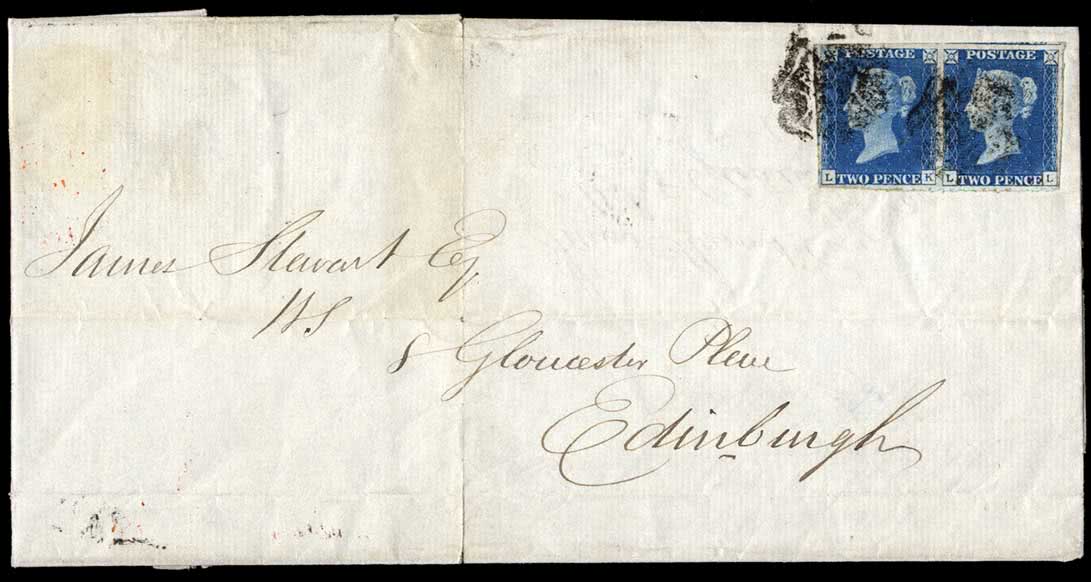 POSTAGE POSTAGE
L TWO PENCE K L TWO PENCE L
James Stewart Esq
WS
8 Gloucester Place
Edinburgh